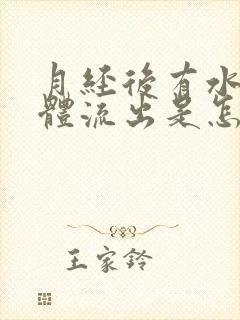 月经後有水
體流出是怎
王家鈴